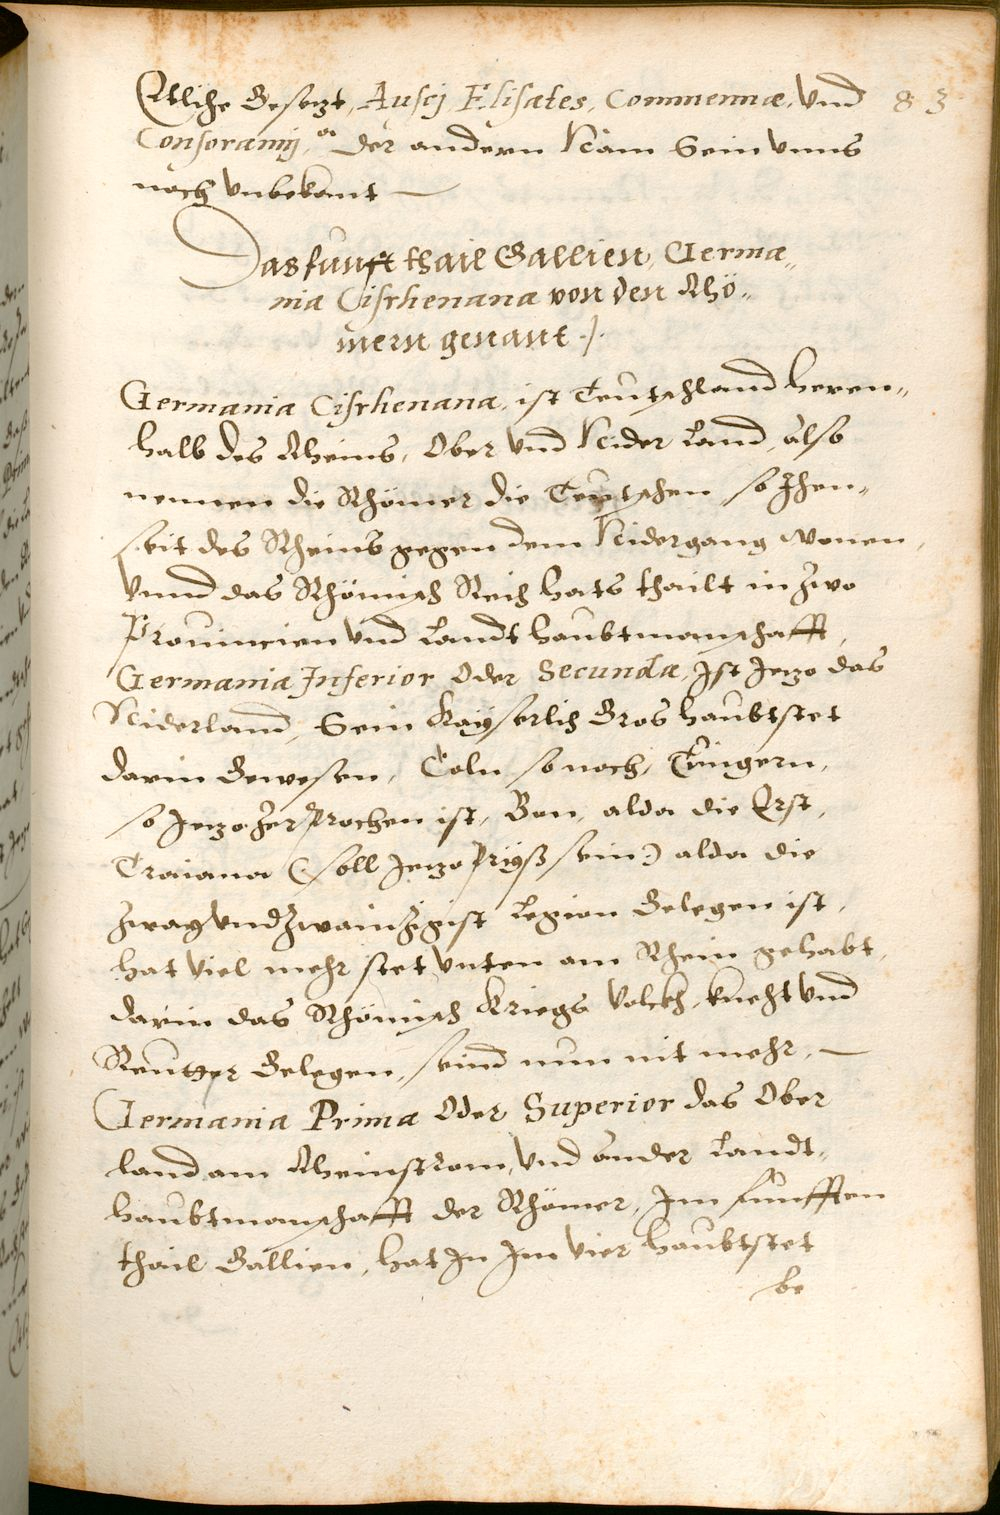 Etliche Gesetzt, Ausci Elisates, Conuennæ, Vnd 83
Consoranij, der andern Nam Sein vnns
noch Vnbekant —
Das funfft thail Gallien, Germa„
nia Cisrhenana von den Rhö„
mern genant ./.
Germania Cisrhenana, ist Teutschland heren„
halb des Rheins, Ober Vnd Nider Land, also
nennen die Rhömer die Teutschen, so Jhen„
seit des Rheins gegen dem Nidergang wonen,
Vnnd das Rhömisch Reich hats thailt in Zwo
Prouincien Vnd Landt haubtmanschafft,
Germania Inferior Oder Secunda, Ist Jezo das
Niderland, Sein Kayserlich Gros haubtstet
darin Gewesen, Cöln so noch, Tungern,
so Jezo Zerprochen ist, Bon, alda die Erst,
Traiana (: soll Jezo Prijß sein:) alda die
Zway Vnd Zwainzigist Legion Gelegen ist,
hat Viel mehr stet Vnten am Rhein gehabt,
darin das Rhömisch Kriegs Volckh, knecht Vnd
Reutter Gelegen, seind nun nit mehr, —
Germania Prima Oder Superior das Ober
land am Rheinstrom, Vnd ander Landt„
haubtmanschafft der Rhömer, Im funfften
thail Gallien, hat In Im Vier haubtstet
be